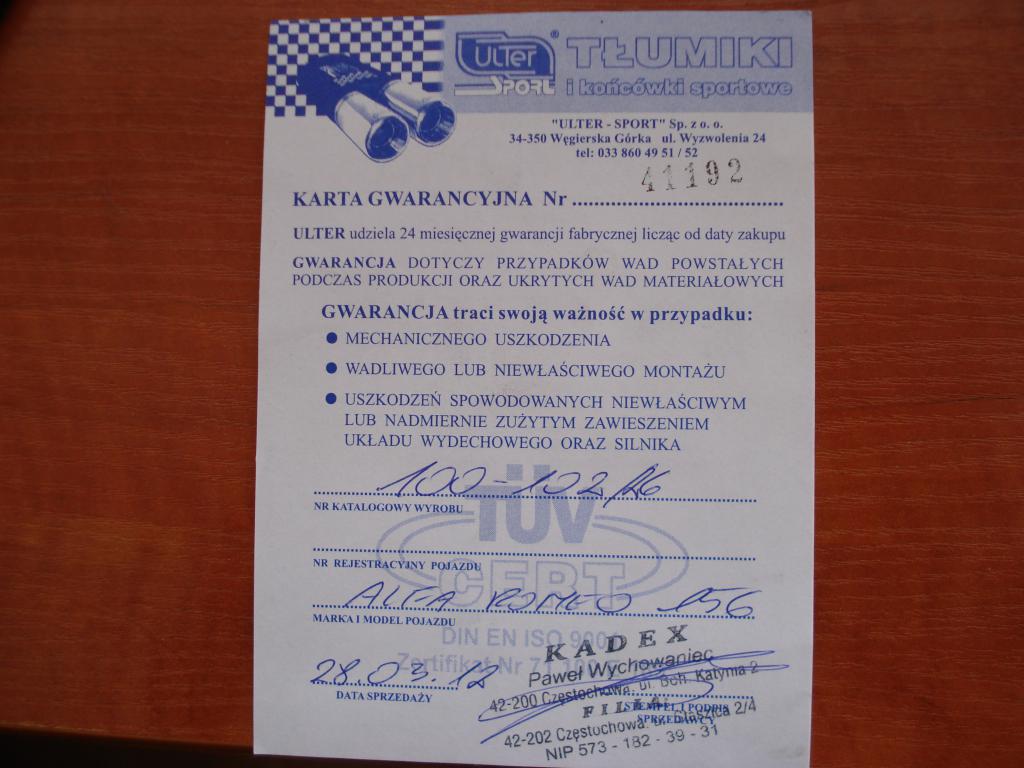 ULTER SPORT ® TŁUMIKI
i końcówki sportowe
"ULTER - SPORT" Sp. z o. o.
34-350 Węgierska Górka ul. Wyzwolenia 24
tel: 033 860 49 51 / 52
41192
KARTA GWARANCYJNA Nr
ULTER udziela 24 miesięcznej gwarancji fabrycznej licząc od daty zakupu
GWARANCJA DOTYCZY PRZYPADKÓW WAD POWSTAŁYCH
PODCZAS PRODUKCJI ORAZ UKRYTYCH WAD MATERIAŁOWYCH
GWARANCJA traci swoją ważność w przypadku:
● MECHANICZNEGO USZKODZENIA
● WADLIWEGO LUB NIEWŁAŚCIWEGO MONTAŻU
● USZKODZEŃ SPOWODOWANYCH NIEWŁAŚCIWYM
LUB NADMIERNIE ZUŻYTYM ZAWIESZENIEM
UKŁADU WYDECHOWEGO ORAZ SILNIKA
100-102/26
NR KATALOGOWY WYROBU
TÜV
NR REJESTRACYJNY POJAZDU
CERT
ALFA ROMEO 156
MARKA I MODEL POJAZDU
DIN EN ISO 900
Zertifikat Nr 71 100
28.03.12
DATA SPRZEDAŻY
KADEX
Paweł Wychowaniec
42-200 Częstochowa, ul. Boh. Katynia 2
FILIA
STEMPEL I PODPIS
SPRZEDAWCY
42-202 Częstochowa, ul. Głaszica 2/4
NIP 573 - 182 - 39 - 31